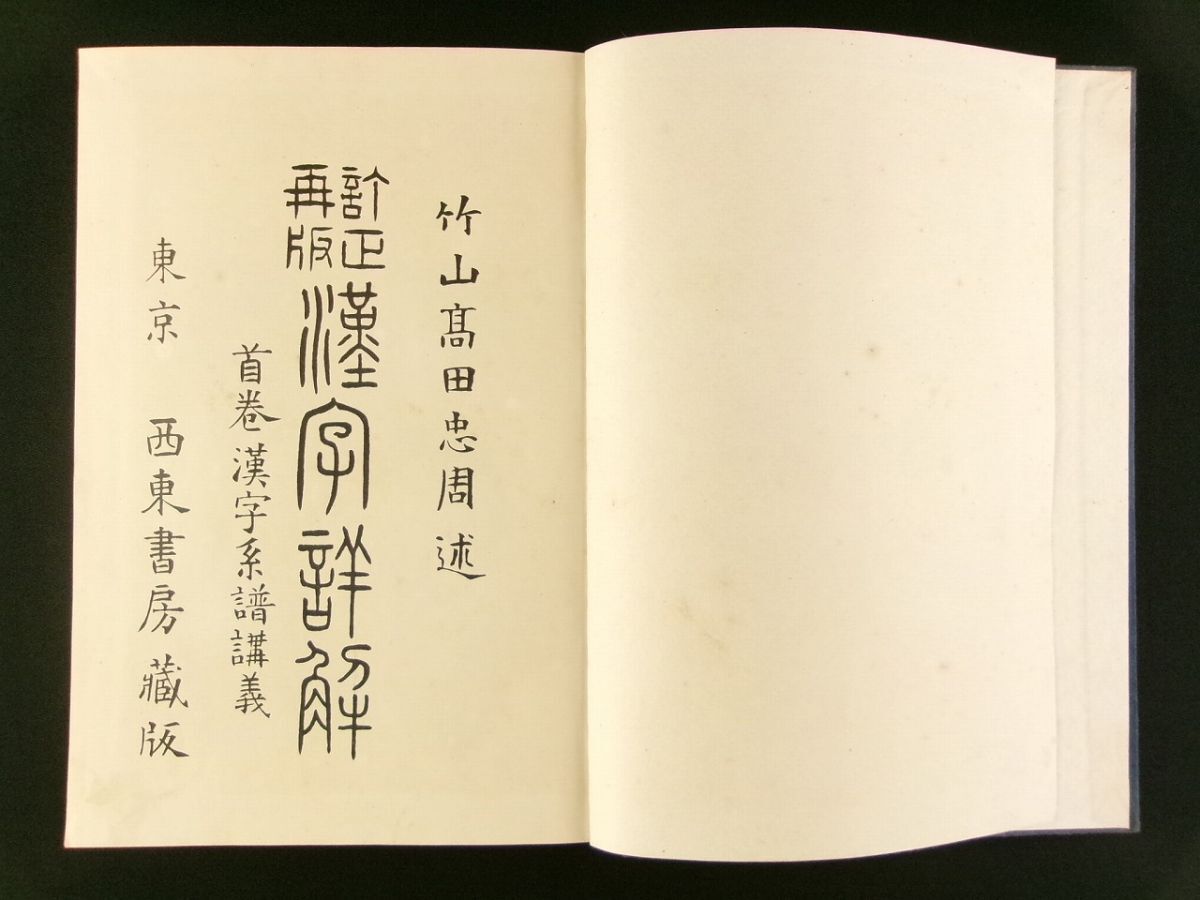 竹山髙田忠周述
訂正
再版
漢字詳解
首卷漢字系譜講義
東京 西東書房藏版